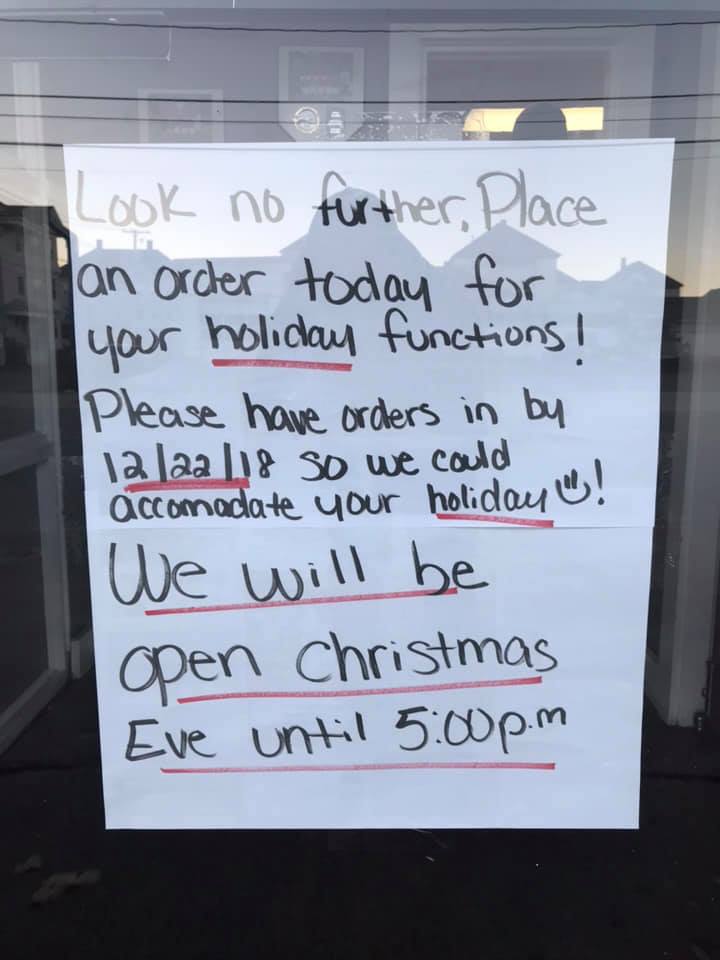 Look no further, Place
an order today for
your holiday functions!
Please have orders in by
12/22/18 so we could
accomadate your holiday !
We will be
open Christmas
Eve until 5:00p.m